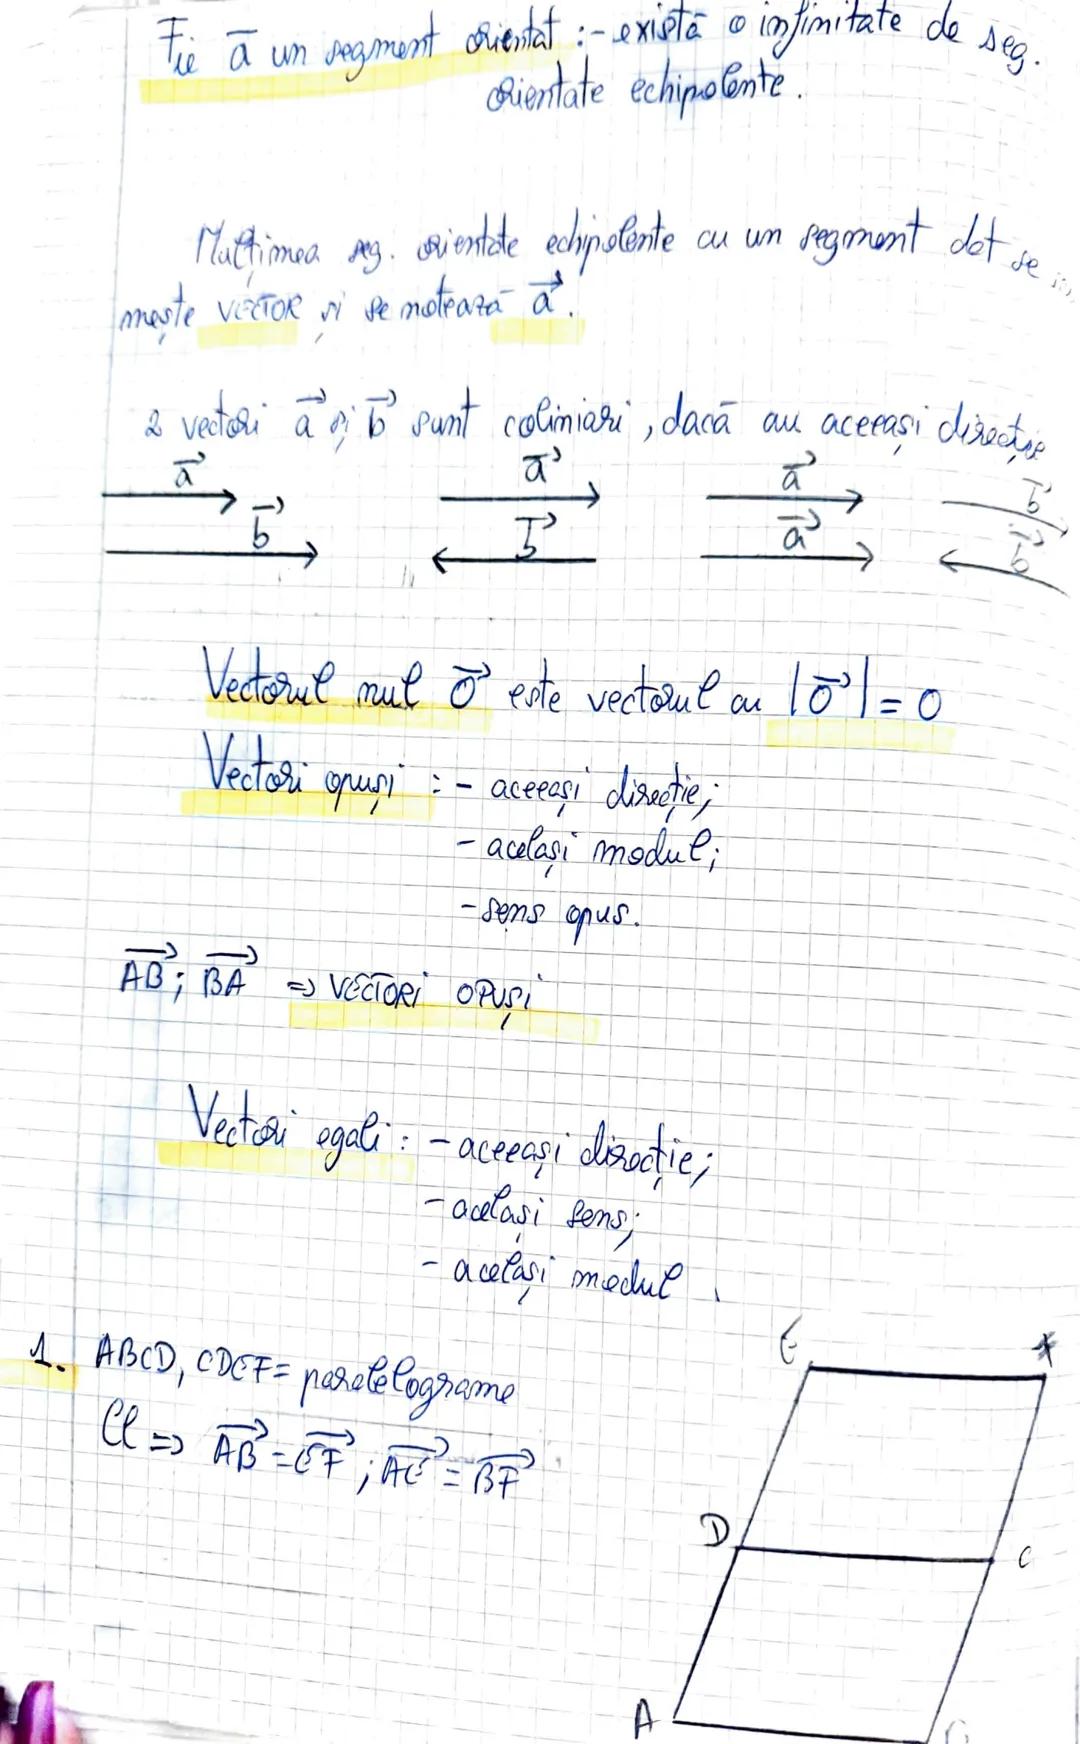 Fie ā un segment orientat :- existā o infinitate de seg.
orientate echipolente.
Mulțimea seg. orientate echipolente cu un segment dat se
mește VECTOR și se notează a⃗.
2 vectori a⃗ și b⃗ sunt coliniari, dacā au aceeași direcție
a⃗ a⃗ a⃗ b⃗
b⃗ b⃗ a⃗ b⃗
Vectorul nul 0⃗ este vectorul cu |0⃗| = 0
Vectori opuși : - aceeași direcție;
- același modul;
- sens opus.
AB⃗; BA⃗ => VECTORI OPUȘI
Vectori egali : - aceeași direcție;
- același sens;
- același modul.
1. ABCD, CDEF = paralelograme
Cl => AB⃗ = EF⃗; AE⃗ = BF⃗
E F
D C
A B